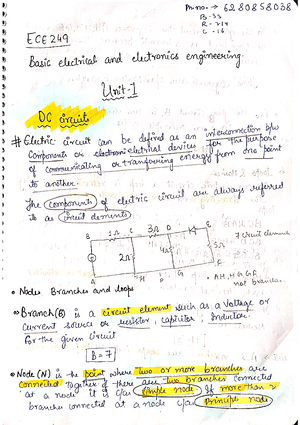 Ph.no. → 6280858038
B-33
R-214
C-16
ECE249
Basic electrical and electronics engineering
Unit-1
DC circuits
# Electric circuit can be defined as an interconnection b/w
components or electrical devices for the purpose
of communicating or transferring energy from one point
to another.
The components of electric circuit are always referred
to as circuit elements.
B 1Ω C 3Ω D E
2Ω 4Ω 5Ω
A H G F
7 circuit element
• AH, HG, GF
not branches.
• Nodes Branches and loops
⇒ Branch(B) is a circuit element such as a voltage or
current source or resistor, capacitor, Inductor.
For the given circuit
B = 7
• Node (N) is the point where two or more branches are
connected together if there are two branches connected
at a node it is c/as simple node If more than 2
branches connected at a node c/as Principle node